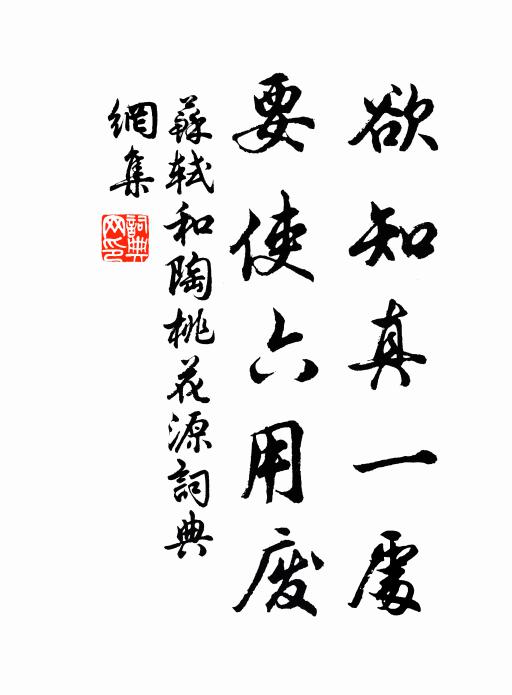 欲知真一處
要使六用废
蘇軾和陶桃花源詞典
網集
詞典網印